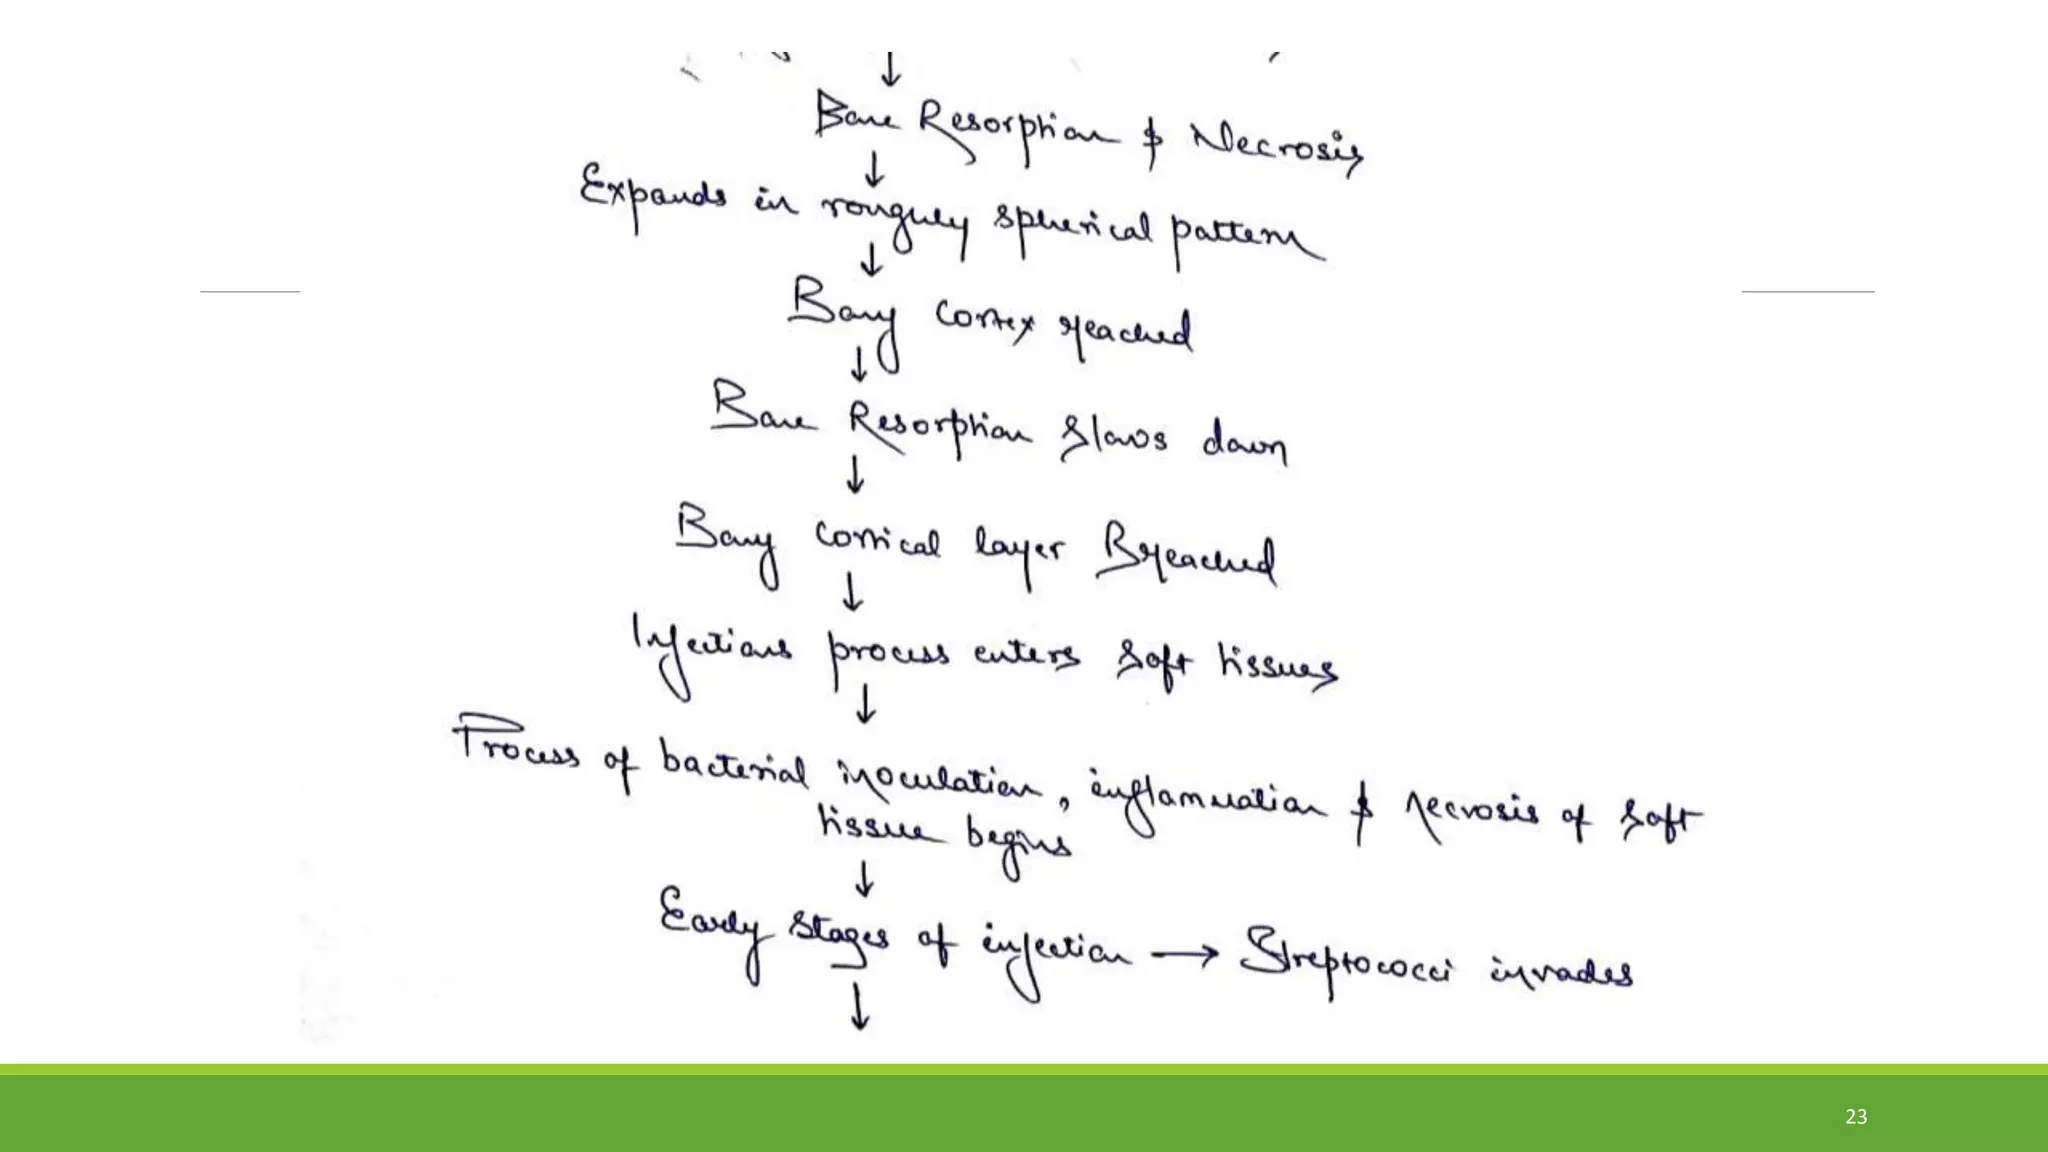 ↓
Bone Resorption & Necrosis
↓
Expands in roughly spherical pattern
↓
Bony cortex reached
↓
Bone Resorption slows down
↓
Bony cortical layer Breached
↓
Infectious process enters soft tissues
↓
Process of bacterial inoculation, inflammation & necrosis of soft
tissue begins
↓
Early stages of infection → Streptococci invades
↓
23